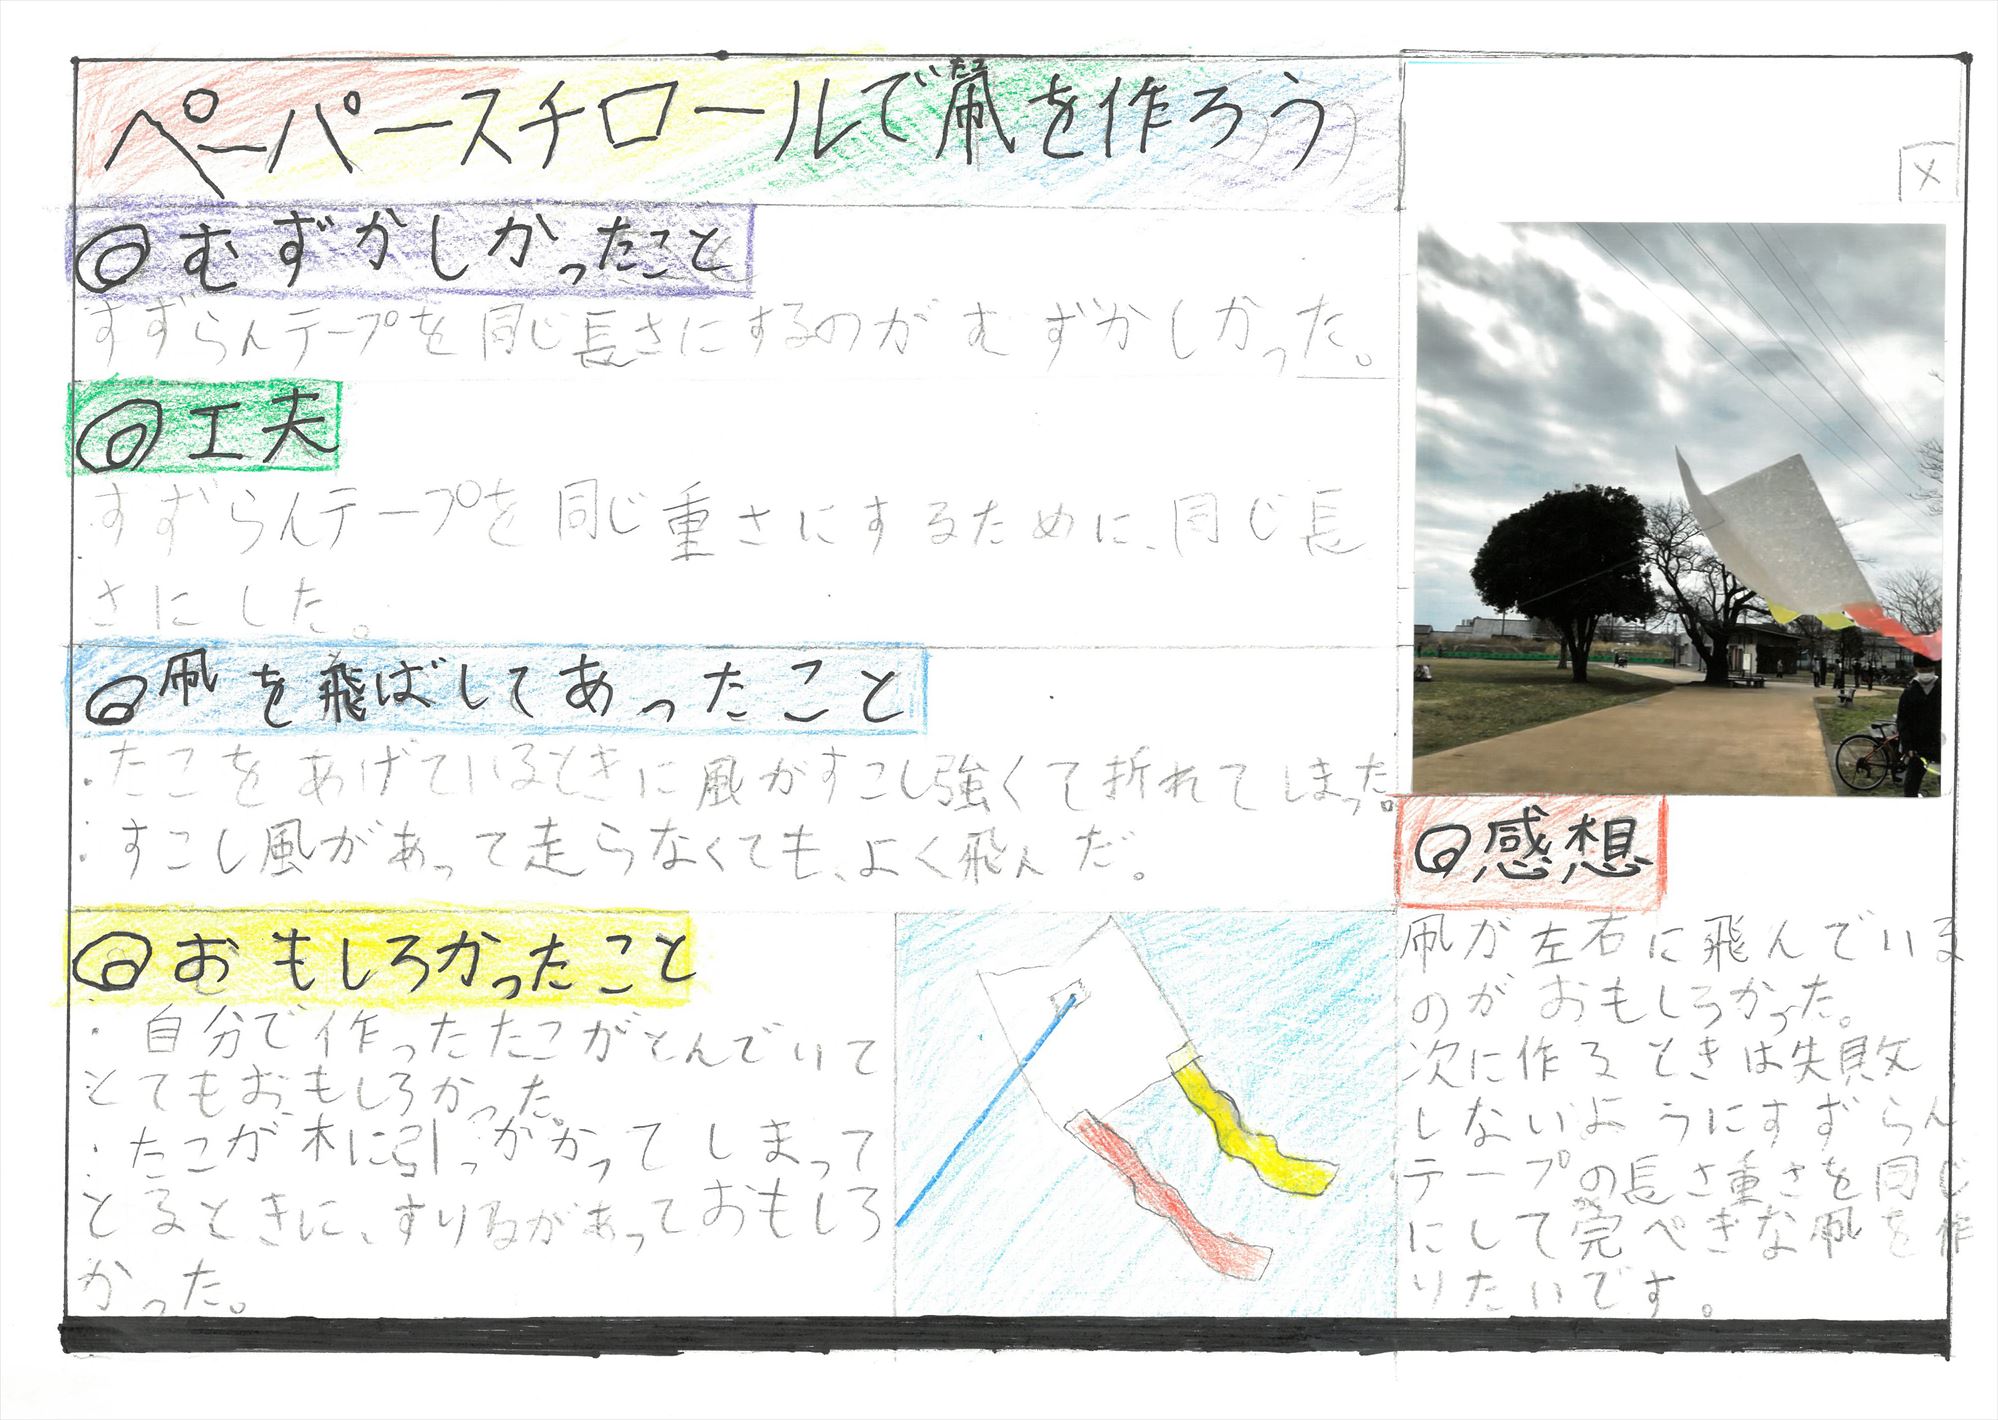 ペーパースチロールで凧を作ろう
たこ
◎むずかしかったこと
すずらんテープを同じ長さにするのがむずかしかった。
◎工夫
すずらんテープを同じ重さにするために、同じ長
さにした。
◎凧を飛ばしてあったこと
・たこをあげているときに風がすこし強くて折れてしまった。
・すこし風があって走らなくても、よく飛んだ。
◎おもしろかったこと
・自分で作ったたこがとんでいて
とてもおもしろかった。
・たこが木に引っかかってしまって
とるときに、すりるがあっておもしろ
かった。
◎感想
凧が左右に飛んでいる
のがおもしろかった。
次に作るときは失敗
しないようにすずらん
テープの長さ重さを同じ
にして完ぺきな凧を作
りたいです。